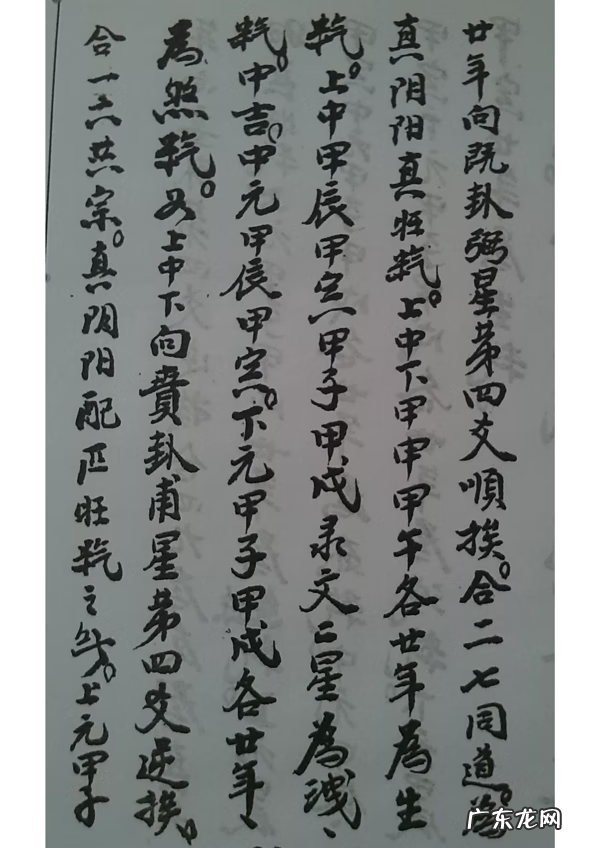 廿年向既卦弼星第四爻順挨。合二七同道。為
真阴阳真旺炁。上中下甲申甲午各廿年為生
炁。上中甲辰甲寅甲子甲戌录文二星為洩〻
炁。中吉。中元甲辰甲寅。下元甲子甲戌各廿年〻
為煞炁。又上中下向賁卦甫星第四爻逆挨。
合一六共宗。真阴阳配匹旺炁之。上元甲子
广东龙网